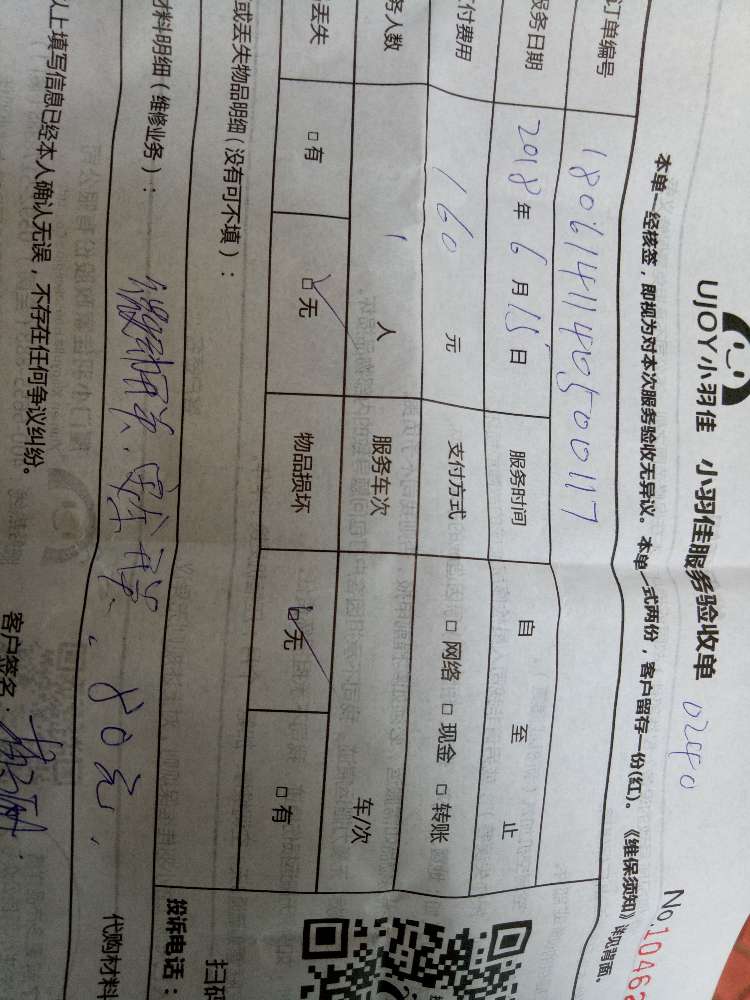 UJOY小羽佳 小羽佳服务验收单 0240
No.1046
本单一经核签,即视为对本次服务验收无异议。本单一式两份,客户留存一份(红)。《维保须知》详见背面。
订单编号 1806141140500117
服务日期 2018年6月15日 服务时间 自 至 止
付费用 160元 支付方式 □网络 □现金 □转账
务人数 1人 服务车次 车/次
丢失 □有 □无 物品损坏 □无 □有
或丢失物品明细(没有可不填):
材料明细(维修业务):
80元,
代购材料
投诉电话:
扫码
以上填写信息已经本人确认无误,不存在任何争议纠纷。
客户签名: